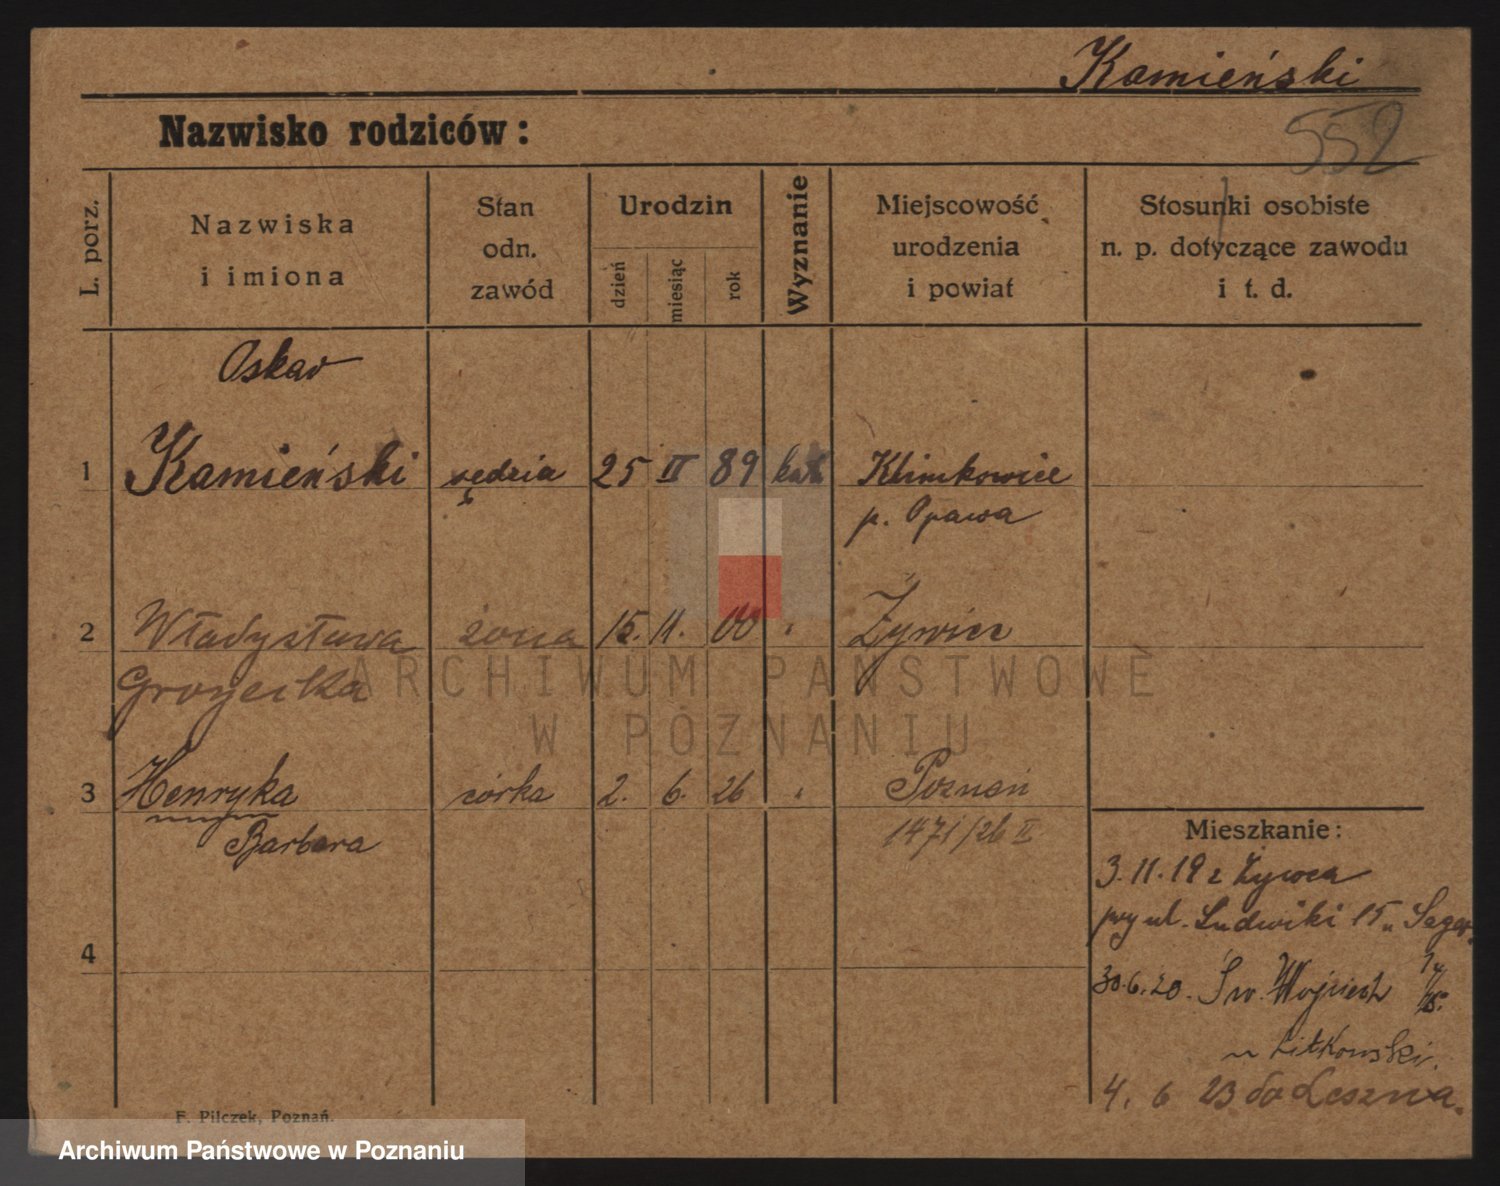 Kamieński
552
Nazwisko rodziców:
L. porz.
Nazwiska
i imiona
Stan
odn.
zawód
Urodzin
dzień
miesiąc
rok
Wyznanie
Miejscowość
urodzenia
i powiat
Stosunki osobiste
n. p. dotyczące zawodu
i t. d.
Oskar
1 Kamieński sędzia 25 II 89 kat Klimkowice
p. Opawa
2 Władysława żona 15. 11. 00 " Żywiec
Grojecka
ARCHIWUM PAŃSTWOWE
W POZNANIU
3 Henryka córka 2. 6. 26 " Poznań
Barbara
1471/26 II.
Mieszkanie:
3. 11. 19 z Żywca
przy ul. Ludwiki 15 u Seger.
4
30. 6. 20. Św. Wojciech
u Litkowski.
4. 6 23 do Leszna.
F. Pilczek, Poznań.
Archiwum Państwowe w Poznaniu